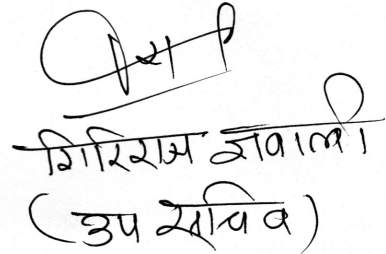 गिरिराज ज्ञवाली
(उप सचिव)